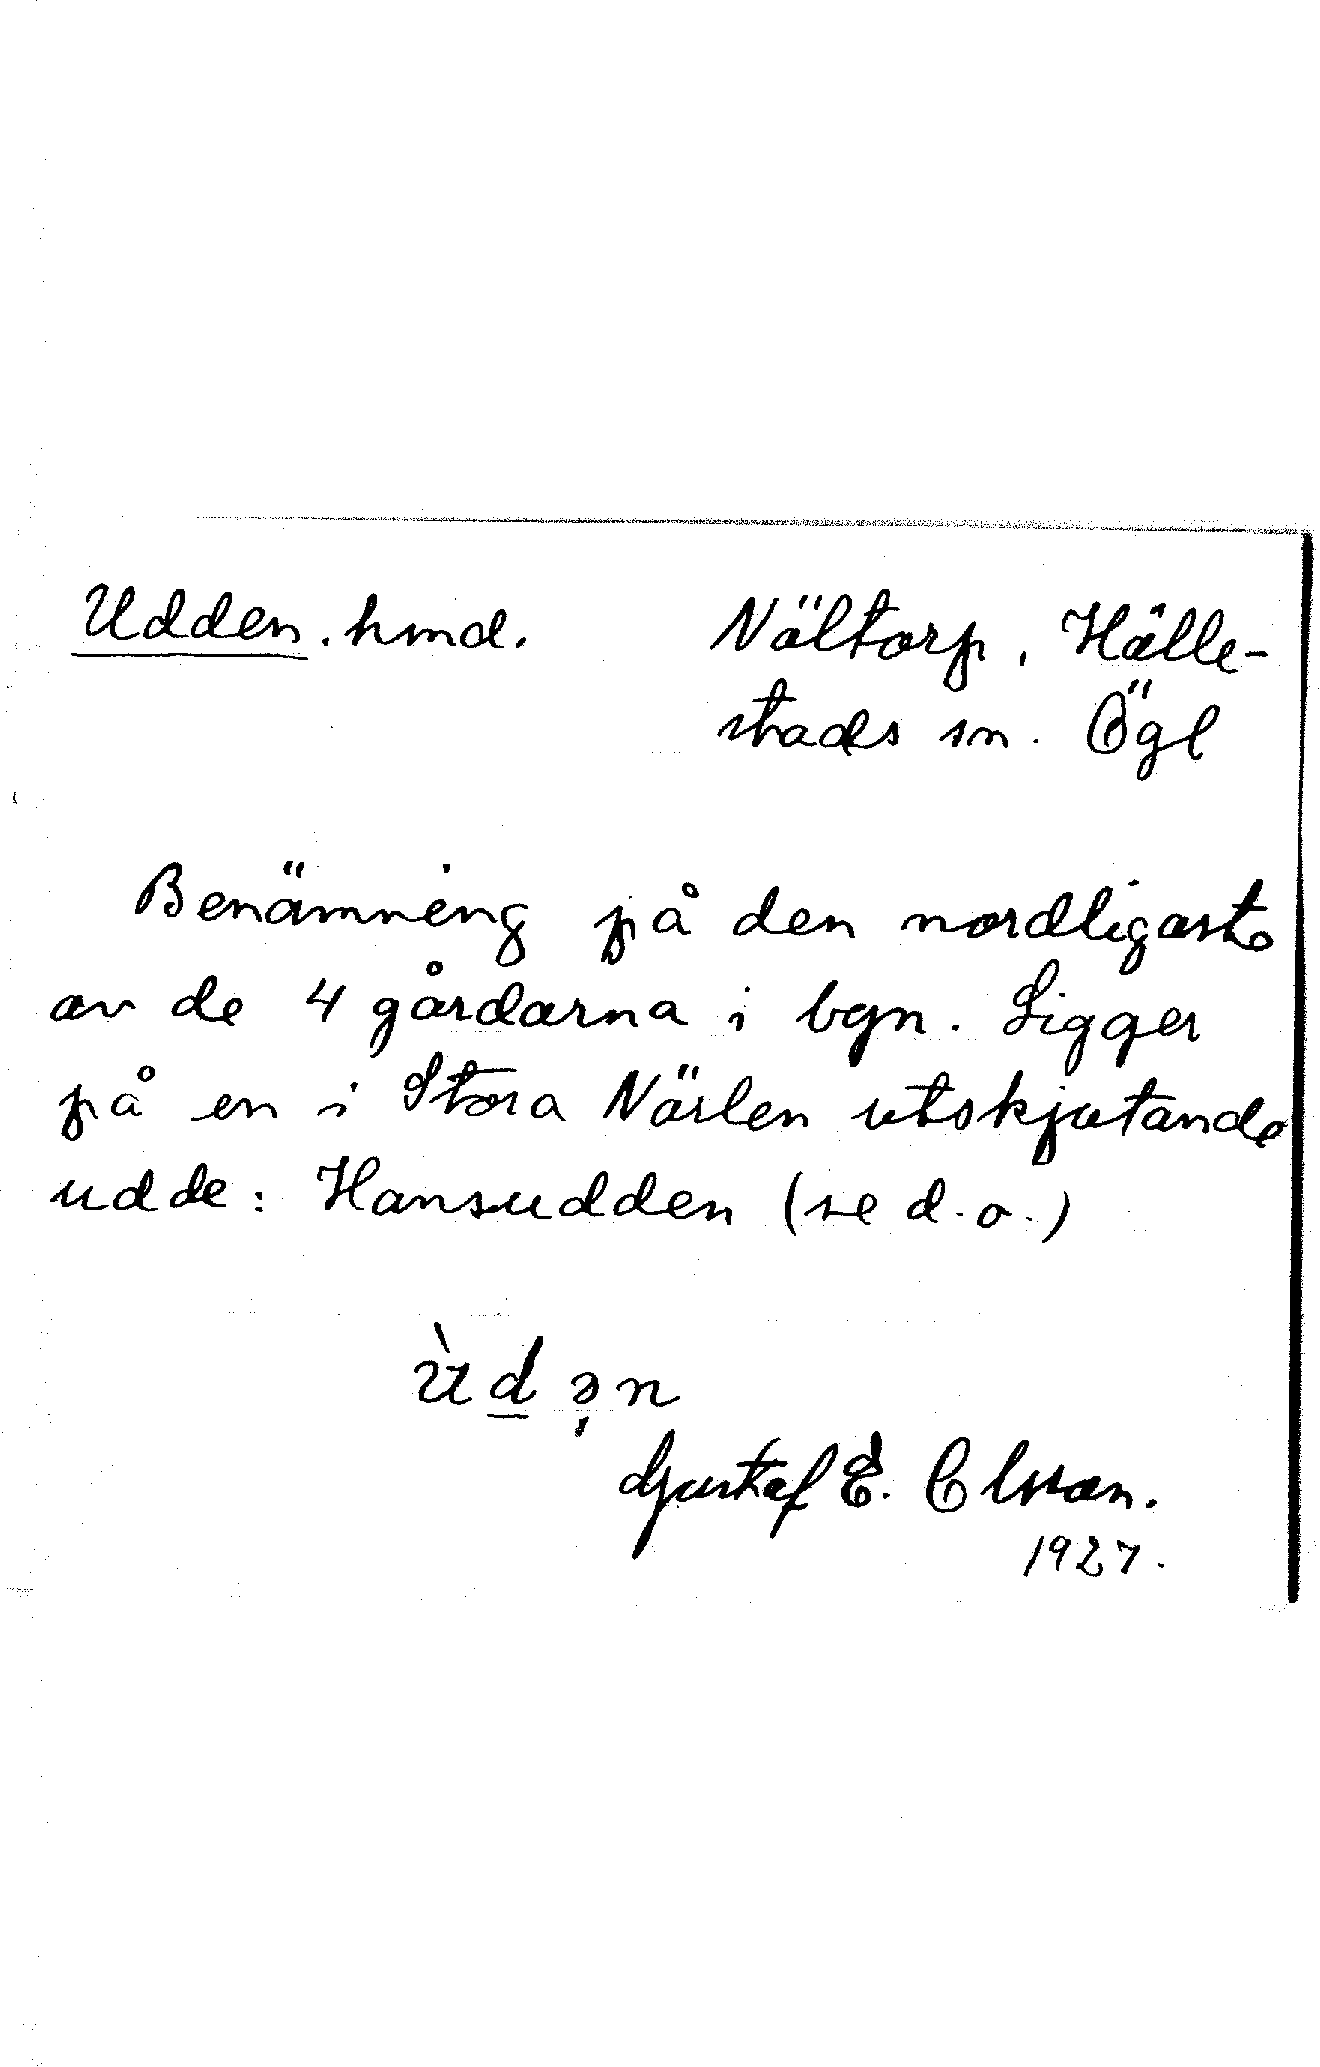 Udden. hmd. Nältorp, Hälle-
stads sn. Ögl
Benämning på den nordligaste
av de 4 gårdarna i bgn. Ligger
på en i Stora Närlen utskjutande
udde: Hansudden (se d.o.)
ùdən
Gustaf E. Olsson.
1927.